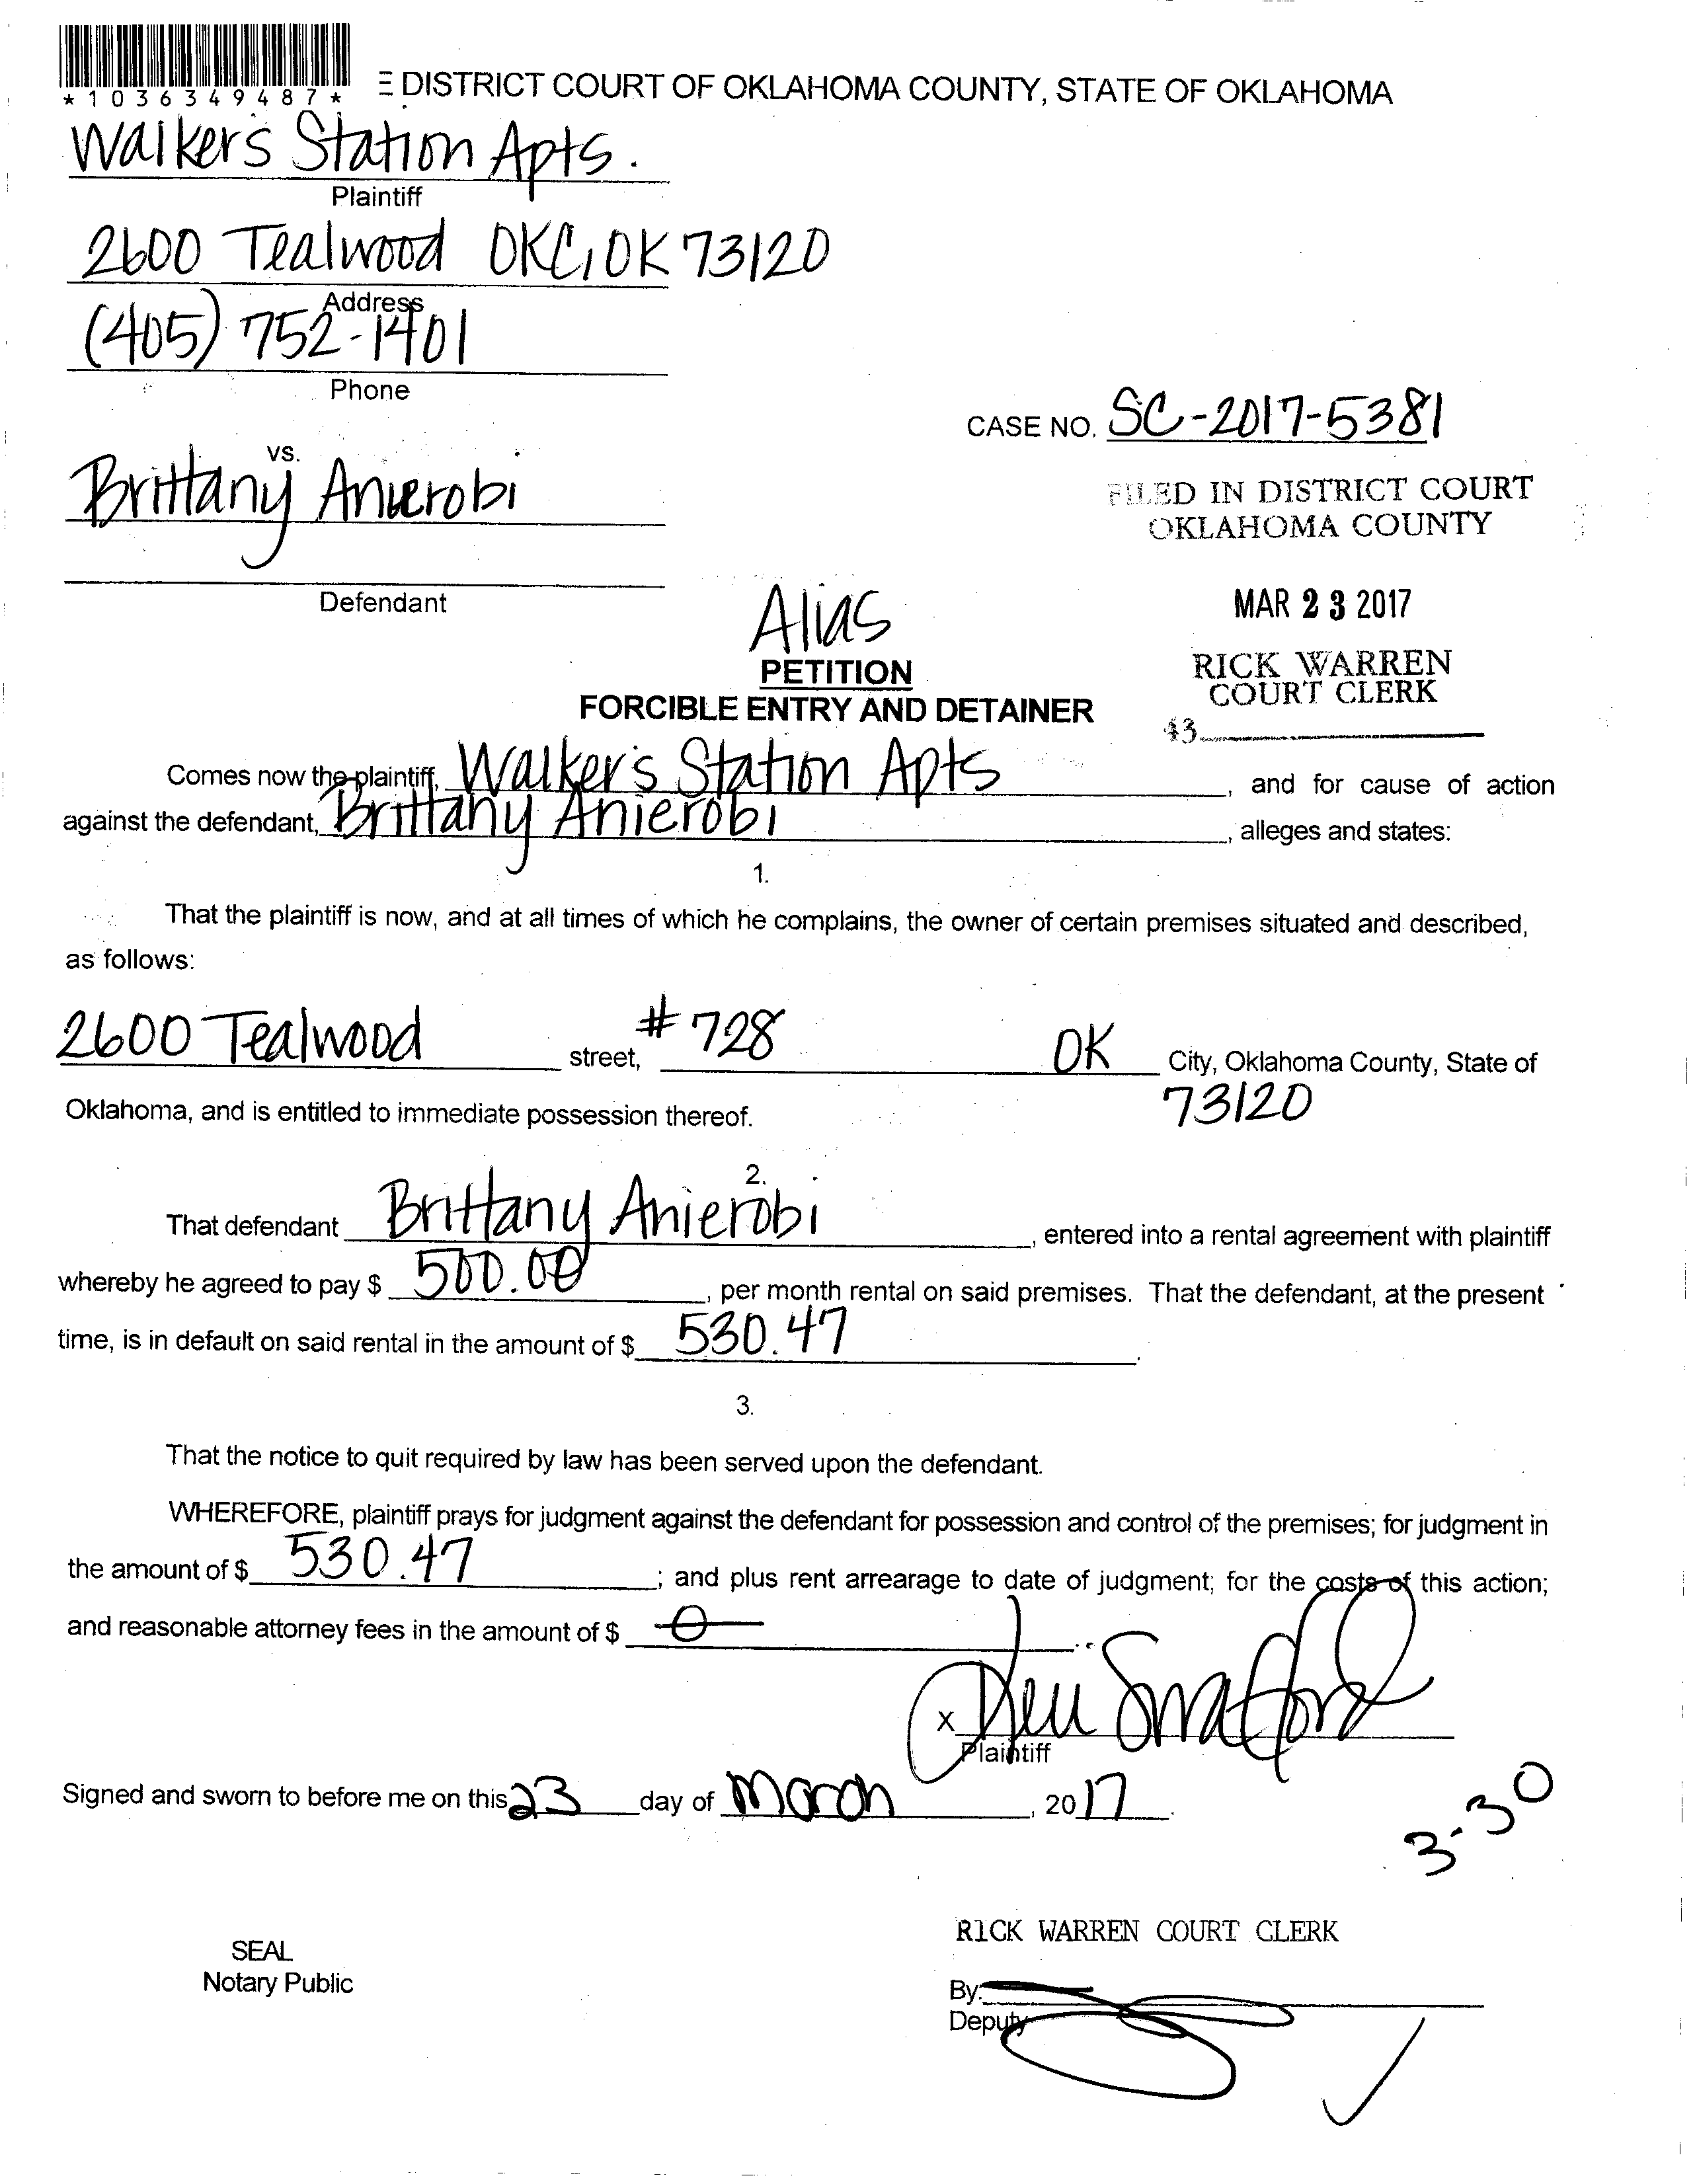 *1036349487*
E DISTRICT COURT OF OKLAHOMA COUNTY, STATE OF OKLAHOMA
Walker's Station Apts.
Plaintiff
2600 Tealwood OKC, OK 73120
Address
(405) 752-1401
Phone
CASE NO. SC-2017-5381
vs.
Brittany Anierobi
FILED IN DISTRICT COURT
OKLAHOMA COUNTY
Defendant
MAR 23 2017
Alias
PETITION
RICK WARREN
COURT CLERK
FORCIBLE ENTRY AND DETAINER
43
Comes now the plaintiff, Walker's Station Apts, and for cause of action
against the defendant, Brittany Anierobi, alleges and states:
1.
That the plaintiff is now, and at all times of which he complains, the owner of certain premises situated and described,
as follows:
2600 Tealwood street, #728 OK City, Oklahoma County, State of
73120
Oklahoma, and is entitled to immediate possession thereof.
2.
That defendant Brittany Anierobi, entered into a rental agreement with plaintiff
whereby he agreed to pay $ 500.00, per month rental on said premises. That the defendant, at the present
time, is in default on said rental in the amount of $ 530.47.
3.
That the notice to quit required by law has been served upon the defendant.
WHEREFORE, plaintiff prays for judgment against the defendant for possession and control of the premises; for judgment in
the amount of $ 530.47; and plus rent arrearage to date of judgment; for the costs of this action;
and reasonable attorney fees in the amount of $ 0.
X
Plaintiff
Signed and sworn to before me on this 23 day of March, 2017.
3-30
RICK WARREN COURT CLERK
SEAL
Notary Public
By:
Deputy